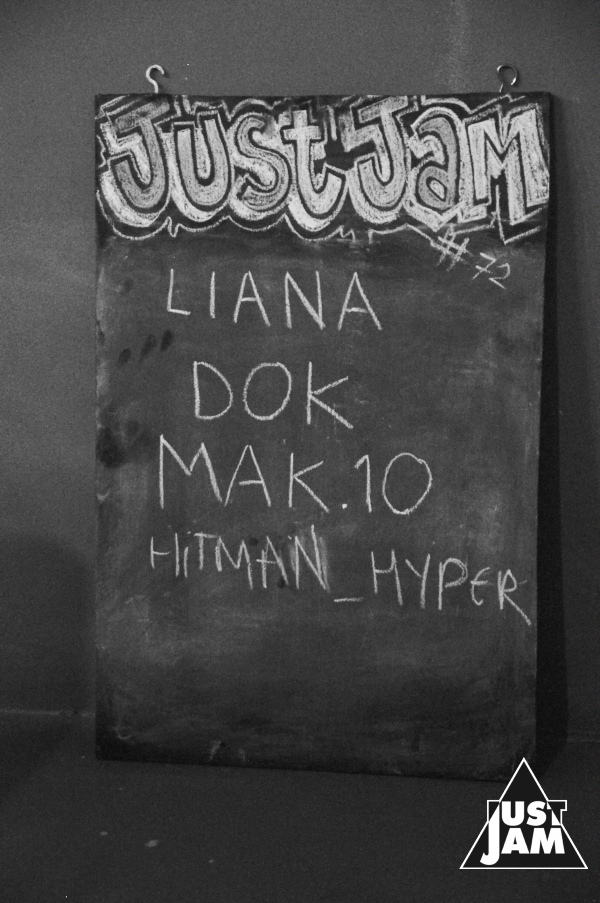 Just Jam
# 72
LIANA
DOK
MAK.10
HiTMAN_HYPER
JUST
JAM